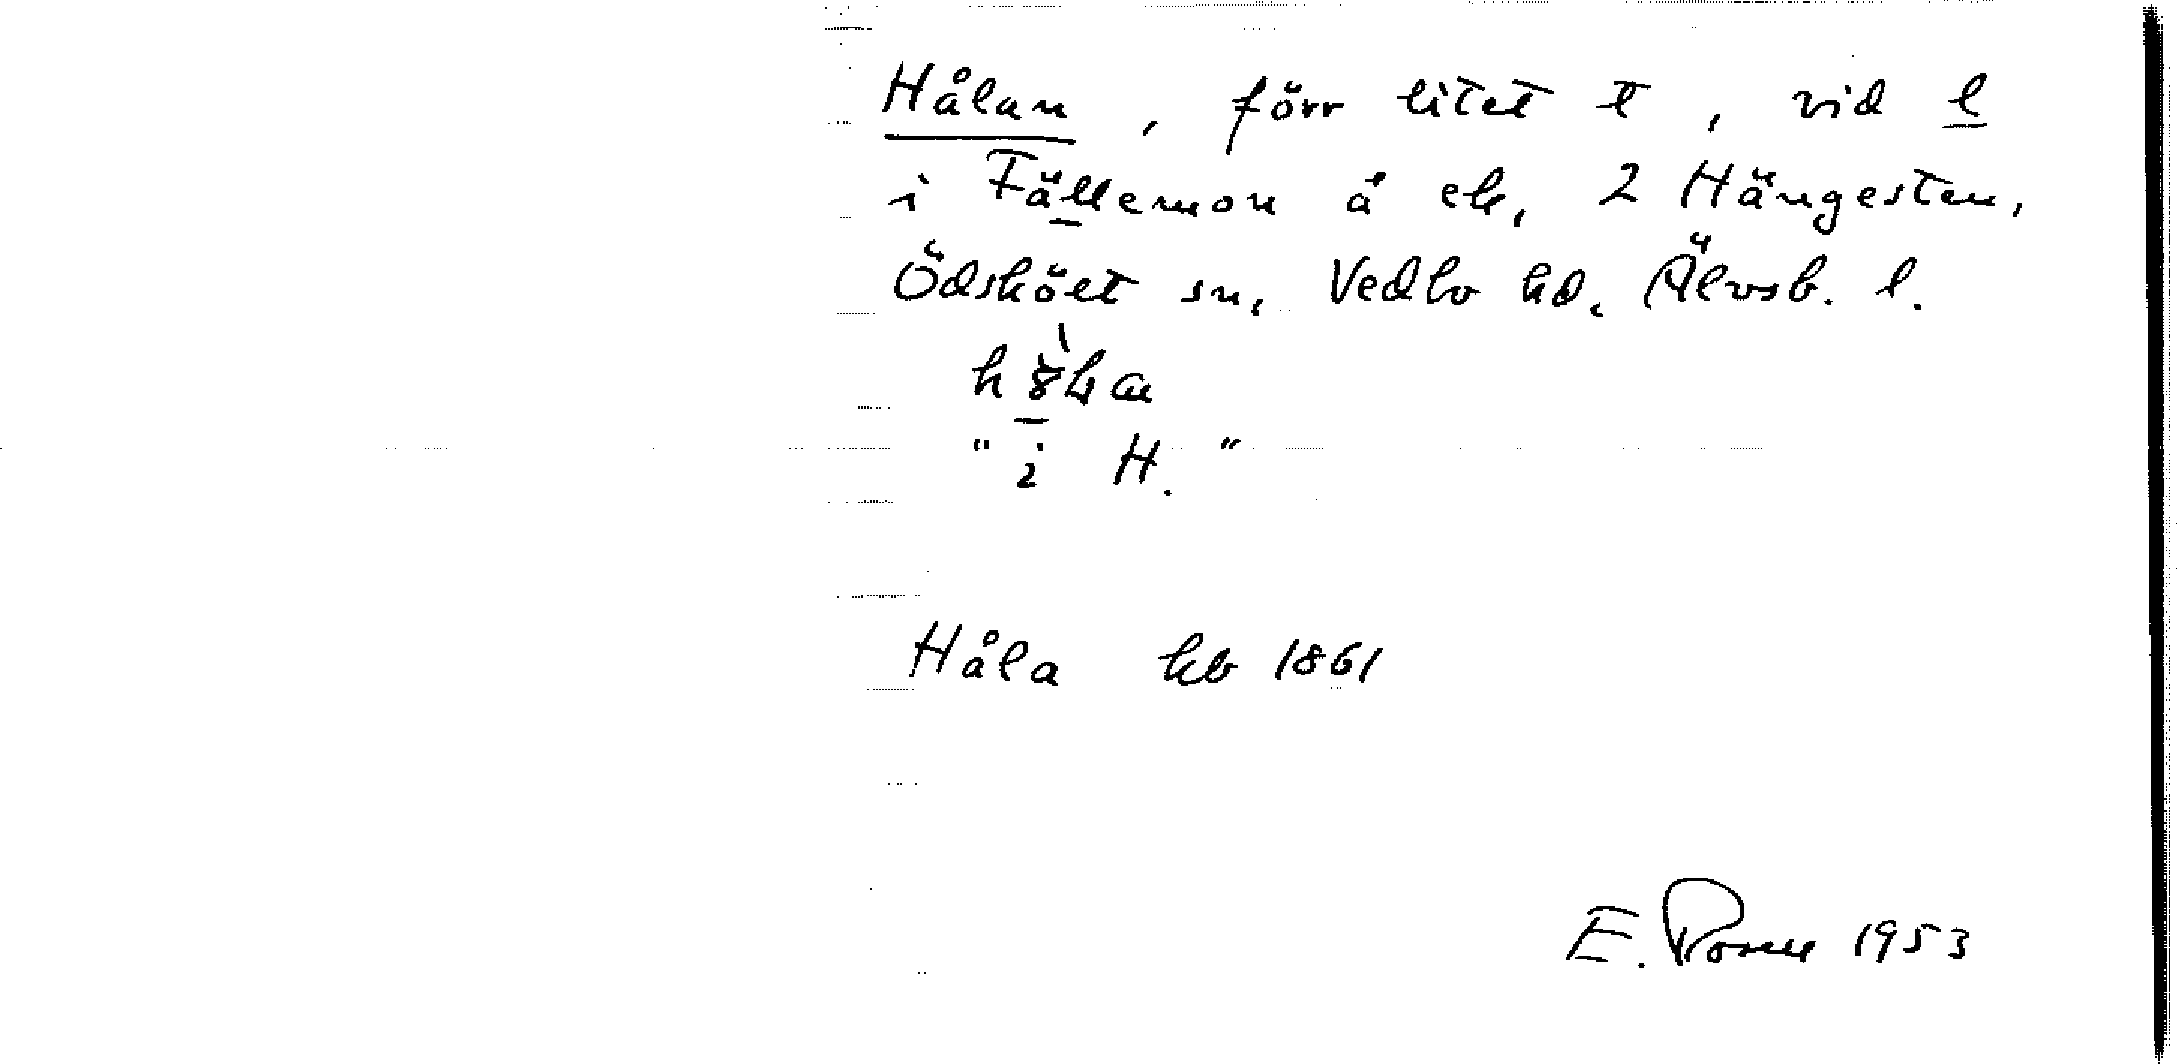 Hålan, förr litet t, vid l
i Fällemon å eh. 2 Hängesten,
Ödsköet sn, Vedbo hd. Älvsb. l.
"i H."
Håla hb 1861
E. Rosell 1953